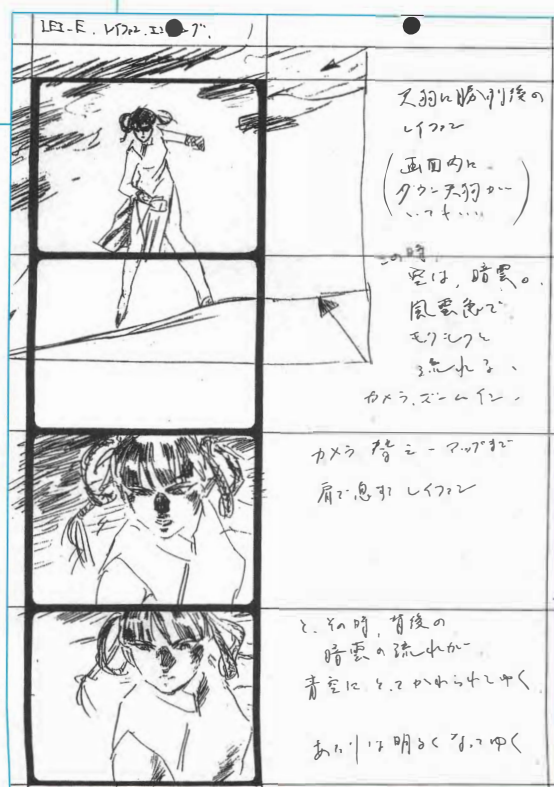 LEI-E. レイファン.エンディング. 1
天狗に勝利後の
レイファン
(画面内に
ダウン天狗が
いても……)
この時、
空は、暗雲。
風雲急で
モクモクと
流れる、
カメラ、ズームイン、
カメラ 替えーアップまで
肩で息する レイファン
と、その時、背後の
暗雲の流れが
青空に とってかわられてゆく
あたりは明るくなってゆく